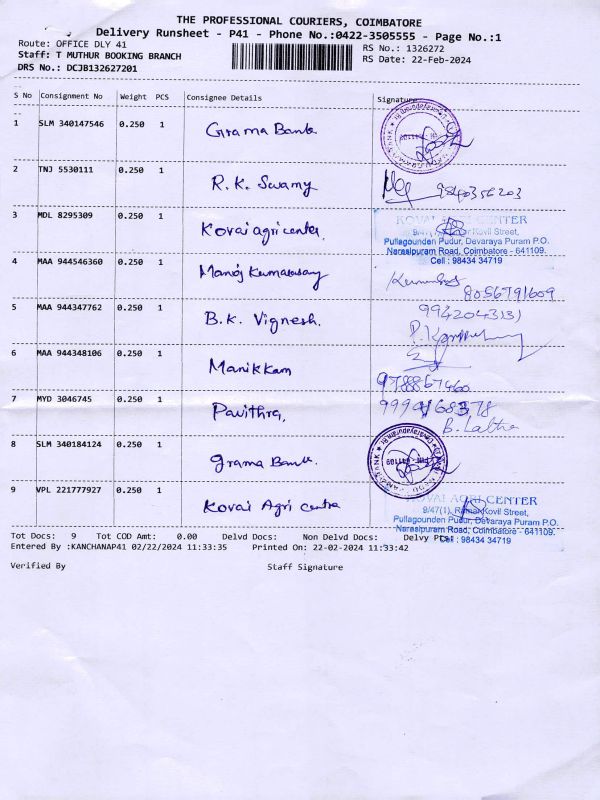 THE PROFESSIONAL COURIERS, COIMBATORE
Delivery Runsheet - P41 - Phone No.:0422-3505555 - Page No.:1
Route: OFFICE DLY 41 RS No.: 1326272
Staff: T MUTHUR BOOKING BRANCH RS Date: 22-Feb-2024
DRS No.: DCJB132627201
S No Consignment No Weight PCS Consignee Details Signature
1 SLM 340147546 0.250 1 Grama Bank
2 TNJ 5530111 0.250 1 R.K. Swamy
3 MDL 8295309 0.250 1 Kovai agri center.
KOVAI AGRI CENTER
Kovil Street,
Pullagounden Pudur, Devaraya Puram P.O.
Narasipuram Road, Coimbatore - 641109.
Cell : 98434 34719
4 MAA 944546360 0.250 1 Manoj Kumarasamy
8056791609
5 MAA 944347762 0.250 1 B.K. Vignesh.
6 MAA 944348106 0.250 1 Manikkam
7 MYD 3046745 0.250 1 Pavithra,
B. Laltha
8 SLM 340184124 0.250 1 grama Bank.
9 VPL 221777927 0.250 1 Kovai Agri centre
KOVAI AGRI CENTER
9/47(1), Kovil Street,
Pullagounden Pudur, Devaraya Puram P.O.
Narasipuram Road, Coimbatore - 641109.
Cell : 98434 34719
Tot Docs: 9 Tot COD Amt: 0.00 Delvd Docs: Non Delvd Docs: Delvy
Entered By :KANCHANAP41 02/22/2024 11:33:35 Printed On: 22-02-2024 11:33:42
Verified By Staff Signature